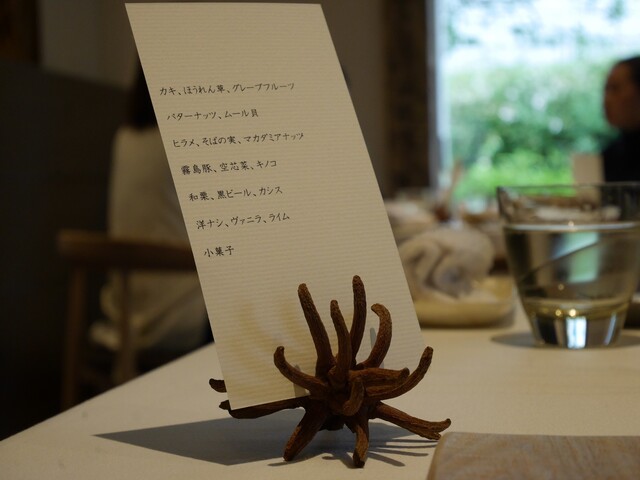 カキ、ほうれん草、グレープフルーツ
バターナッツ、ムール貝
ヒラメ、そばの実、マカダミアナッツ
霧島豚、空芯菜、キノコ
和栗、黒ビール、カシス
洋ナシ、ヴァニラ、ライム
小菓子